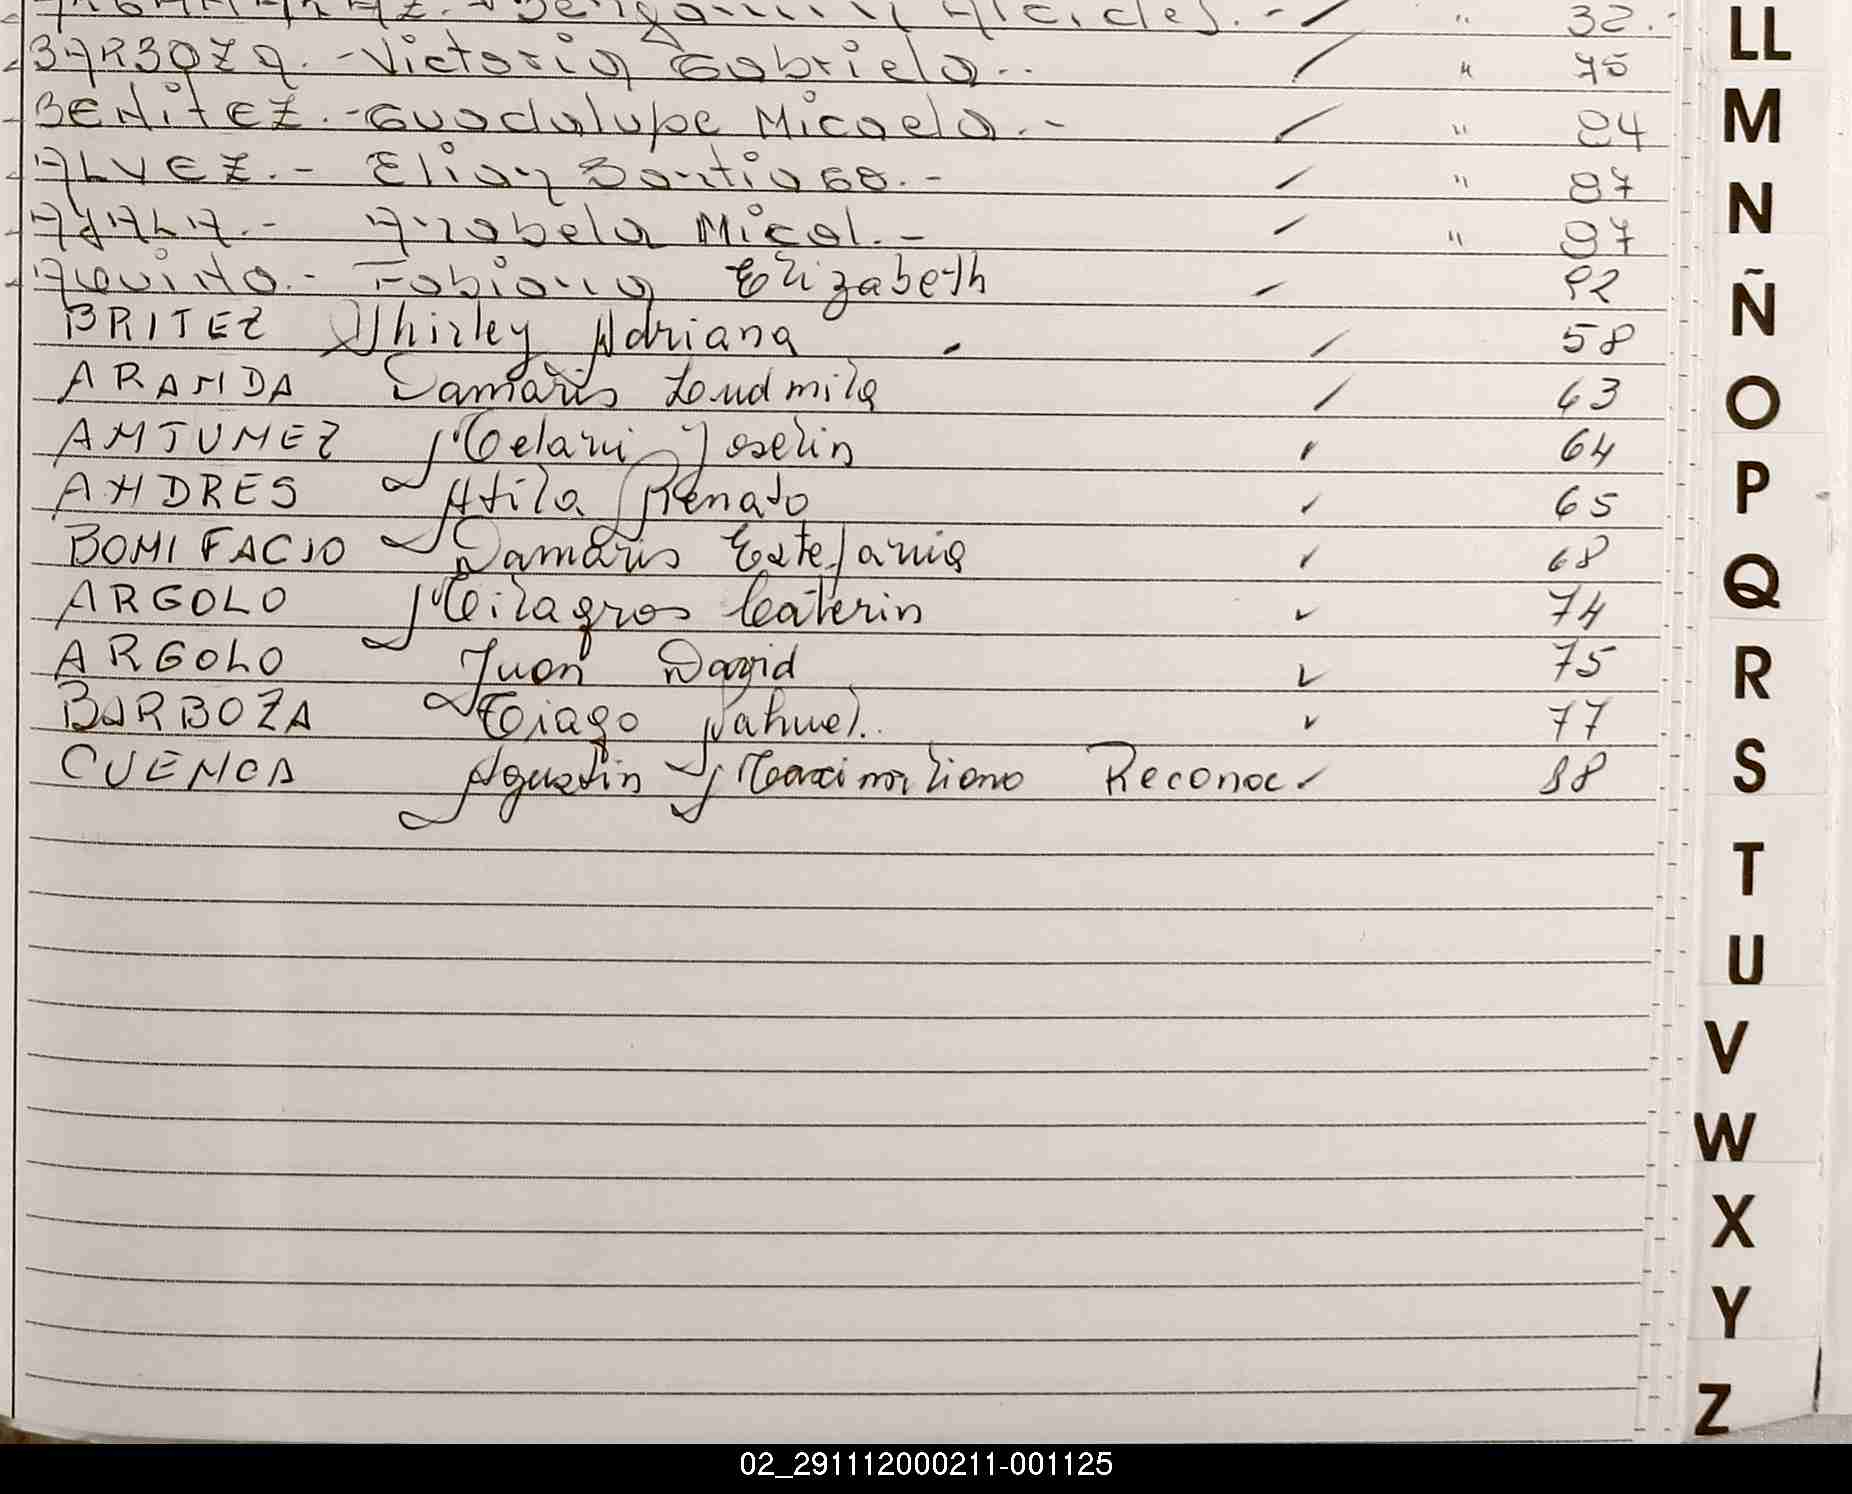 Benjamin Alcides.- / " 32.-
BARBOZA.- Victoria Gabriela.- / " 75
BENITEZ.- Guadalupe Micaela.- / " 84
ALVEZ.- Elian Santiago.- / " 87
AYALA.- Anabela Micol.- / " 97
AQUINO.- Fabiana Elizabeth / 92
BRITEZ Shirley Adriana / 58
ARANDA Damaris Ludmila / 63
ANTUNEZ Melani Joselin / 64
ANDRES Atila Renato / 65
BONIFACIO Damaris Estefania / 68
ARGOLO Milagros Caterin ✓ 74
ARGOLO Juan David ✓ 75
BARBOZA Tiago Nahuel. ✓ 77
CUENCA Agustin Maximiliano Reconoc ✓ 88
LL
M
N
Ñ
O
P
Q
R
S
T
U
V
W
X
Y
Z
02_291112000211-001125